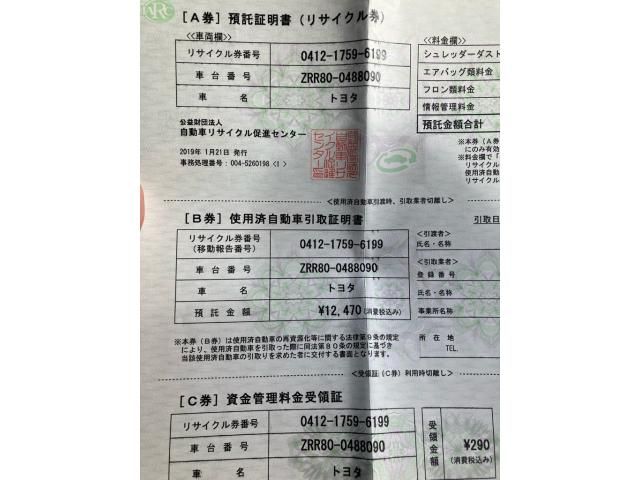 [A券] 預託証明書(リサイクル券)
<<車両欄>>
<<料金欄>>
リサイクル券番号 0412-1759-6199
シュレッダーダスト
車台番号 ZRR80-0488090
エアバッグ類料金
車名 トヨタ
フロン類料金
情報管理料金
預託金額合計
公益財団法人
自動車リサイクル促進センター
2019年 1月21日 発行
事務処理番号:004-5260198<I>
※本券(A券
にのみ有効
※料金欄で「
リサイクル
使用済自動車
リサイクル
<使用済自動車引渡時、引取業者切離し>
[B券] 使用済自動車引取証明書
引取日
リサイクル券番号
(移動報告番号) 0412-1759-6199
<引渡者>
氏名・名称
車台番号 ZRR80-0488090
<引取業者>
登録番号
車名 トヨタ
氏名・名称
預託金額 ¥12,470(消費税込み)
事業所名称
※本券(B券)は使用済自動車の再資源化等に関する法律第9条の規定
により、使用済自動車を引取った際に同法第80条の規定に基づき
当該使用済自動車の引取りを求めた者に交付する書面となります。
所在地
TEL.
<受領証(C券)利用時切離し>
[C券] 資金管理料金受領証
リサイクル券番号 0412-1759-6199
車台番号 ZRR80-0488090
車名 トヨタ
受領金額 ¥290
(消費税込み)